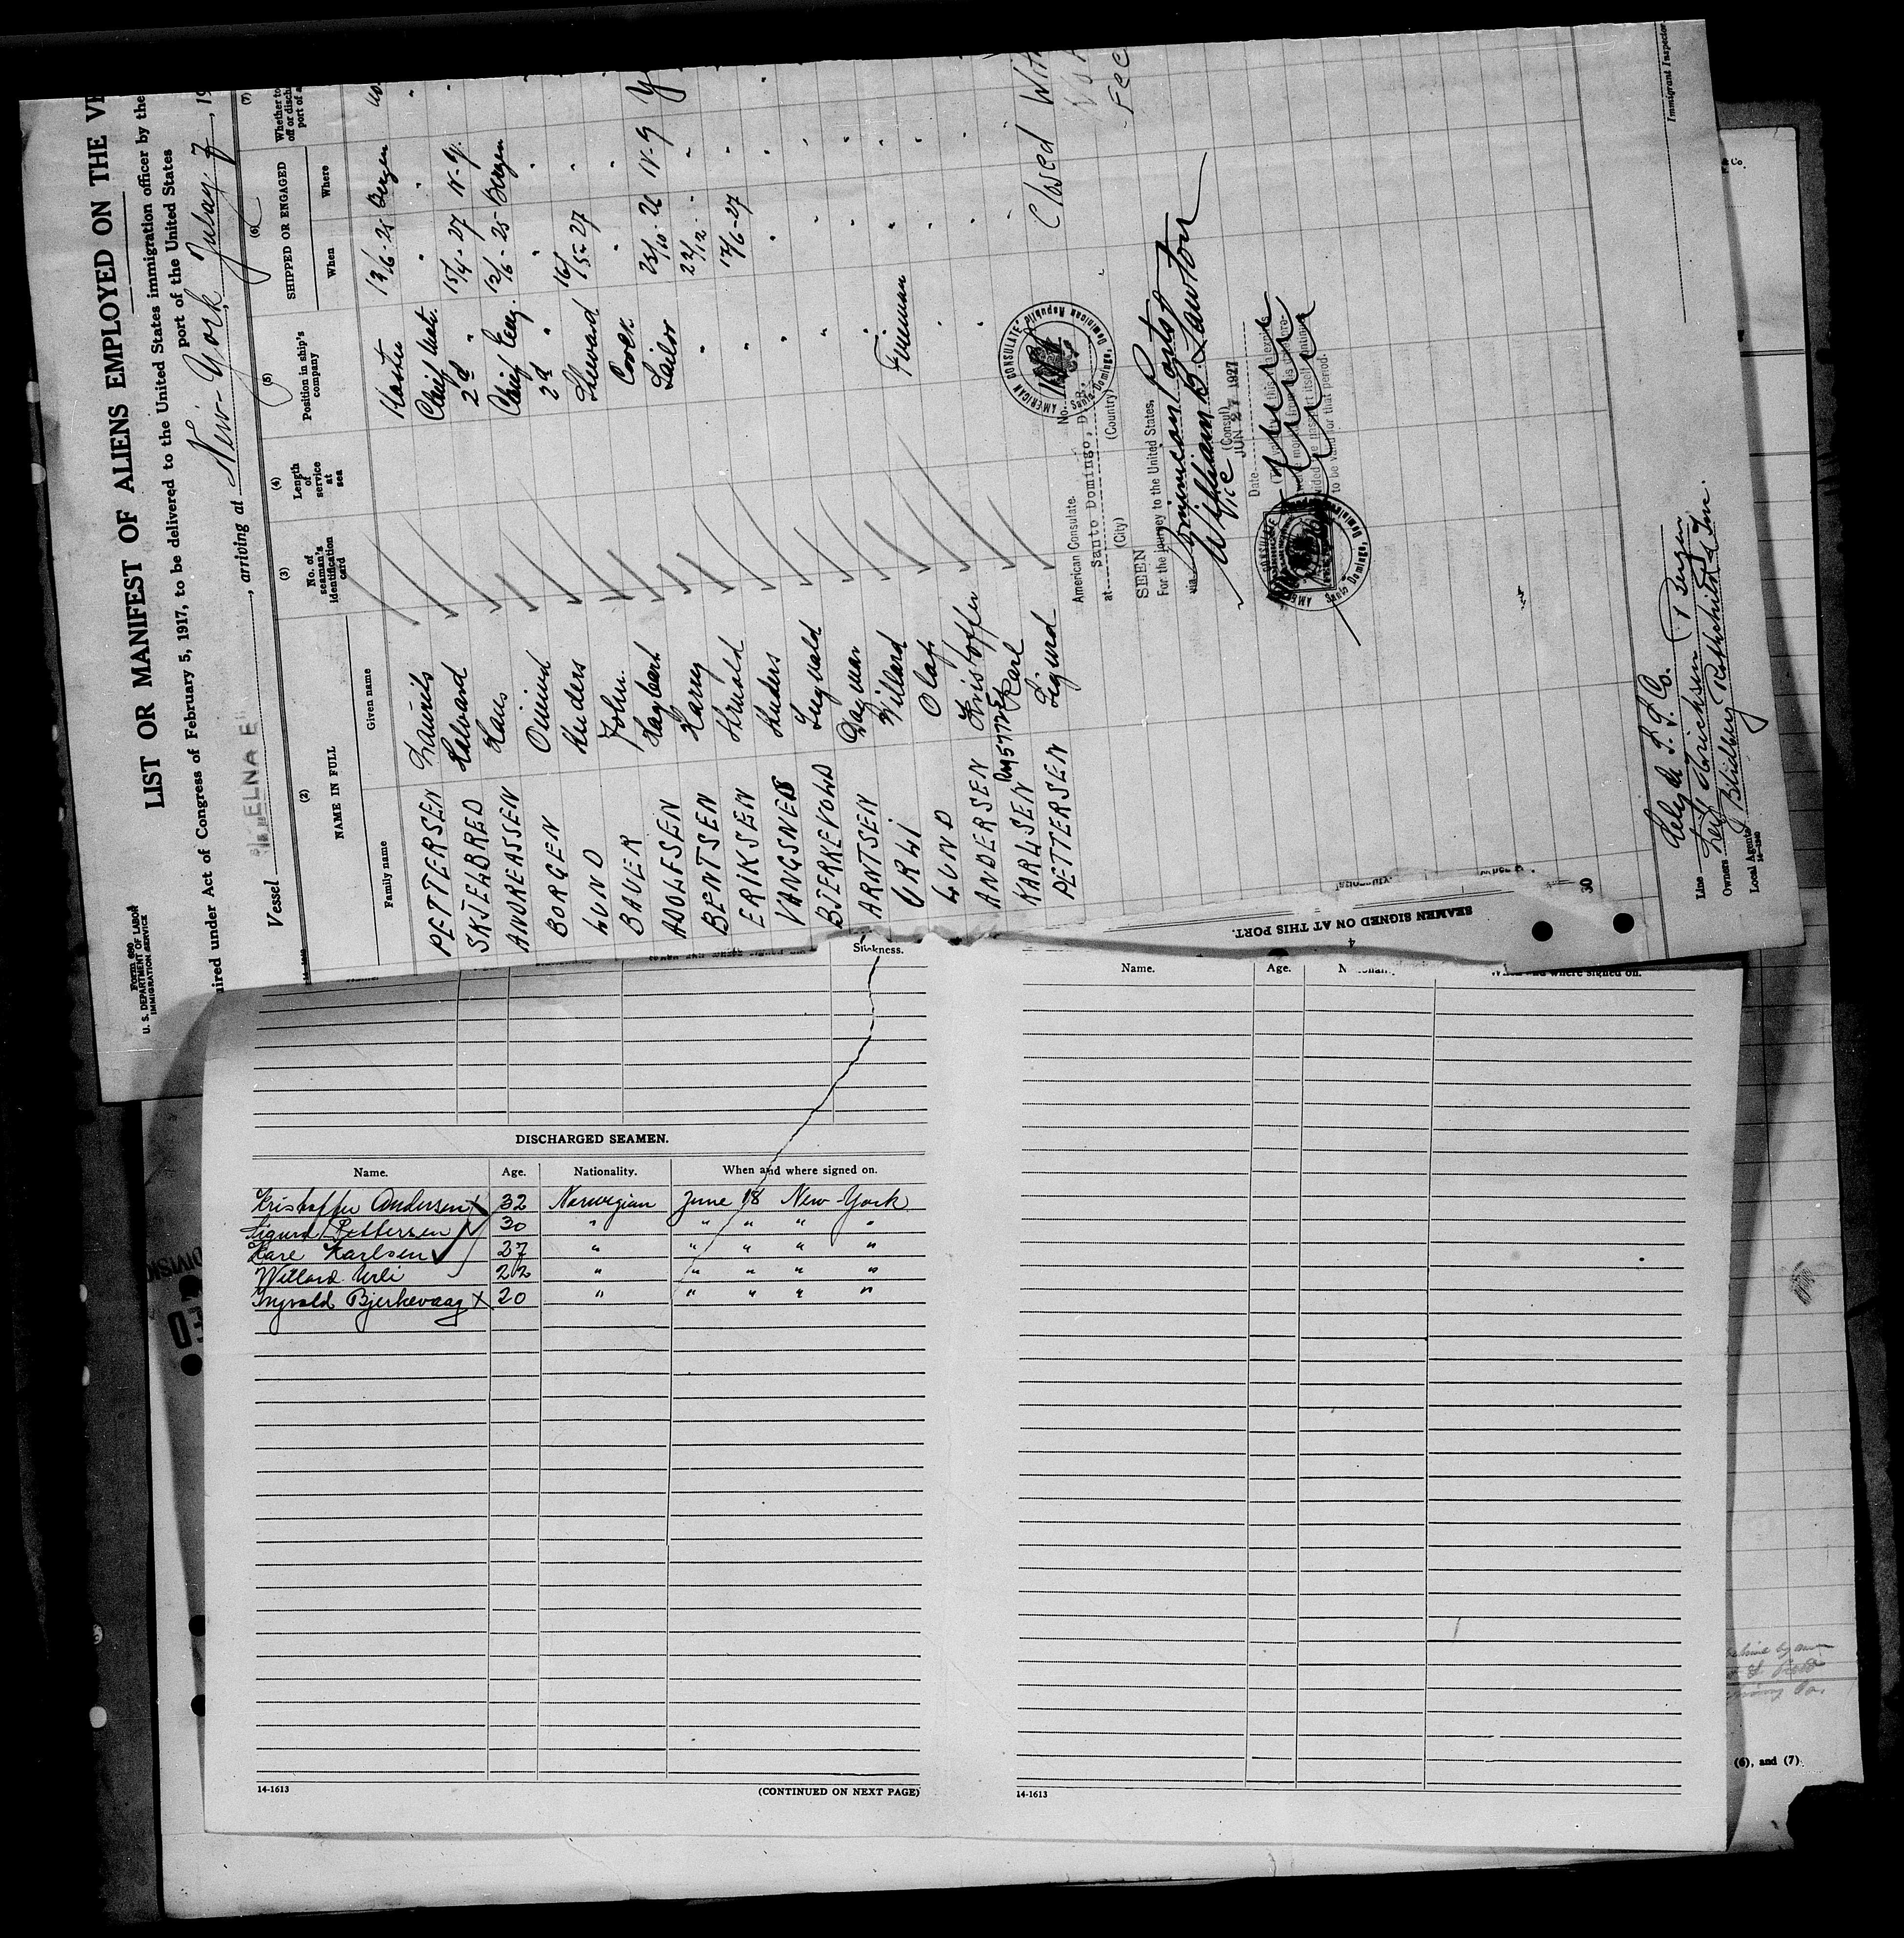 Form 680
U. S. DEPARTMENT OF LABOR
IMMIGRATION SERVICE
LIST OR MANIFEST OF ALIENS EMPLOYED ON THE VE
uired under Act of Congress of February 5, 1917, to be delivered to the United States immigration officer by the
port of the United States
Vessel ELNA E", arriving at New-York, July 7, 19
(2) (3) (4) (5) (6) (7)
NAME IN FULL
Family name Given name
No. of seaman's identification card
Length of service at sea
Position in ship's company
SHIPPED OR ENGAGED
When Where
PETTERSEN Laurits Master 13/6-25 Bergen
SKJELBRED Halvard Chief mate. " "
ANDREASSEN Hans 2d " 15/4-27 N-Y.
BORGEN Chief Eng. 13/6-25 Bergen
LUND Anders 2d " " "
BAUER John. Steward 16/5-27 "
ADOLFSEN Hagbart Cook " "
BENTSEN Harry Sailor 23/10-26 N-Y
ERIKSEN " 22/12 "
VANGSNES Anders " 17/6-27 "
BJERKEVOLD Ingvald " " "
ARNTSEN Dagmar " " "
URLI Willard " " "
LUND Olaf Fireman " "
ANDERSEN Kristoffer " " "
KARLSEN Karl " " "
PETTERSEN Sigurd
Closed With
Fee
American Consulate.
No.
at Santo Domingo, D.R.
(City) (Country)
AMERICAN CONSULATE
Santo Domingo, Dominican Republic
SEEN
For the journey to the United States,
via Dominican Ports
William B. Lawton
Vice (Consul)
Date JUN 27 1927
to be valid for that period.
Line Clyde S. S. Co.
Owners Leif Erichsen, Bergen
Local Agents Blidberg Rothchild Inc.
Immigrant Inspector
SEAMEN SIGNED ON AT THIS PORT.
4
30
Sickness.
Name. Age. When and where signed on.
DISCHARGED SEAMEN.
Name. Age. Nationality. When and where signed on.
Kristoffer Andersen x 32 Norwegian June 18 New-York
Sigurd Pettersen 30 " " " " "
Kare Karlsen 27 " " " " "
Willard Urli 22 " " " " "
Ingvald Bjerkevaag x 20 " " " " "
14-1613 (CONTINUED ON NEXT PAGE)
14-1613
& Co
(6), and (7).